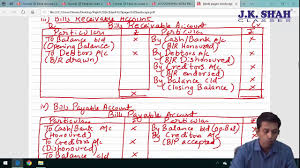 J.K. SHAH
CLASSES
iii) Bills Receivable Account
Bills Receivable Account
Particulars ₹ Particulars ₹
To Balance b/d x By Cash/Bank A/c x
(Opening Balance) (B/R Honoured)
To Debtors A/c x By Debtors A/c x
(B/R drawn) (B/R Dishonoured)
By Creditors A/c x
(B/R endorsed)
By Balance c/d x
(Closing Balance)
iv) Bills Payable Account
Bills Payable Account
Particulars ₹ Particulars ₹
To Cash/Bank A/c x By Balance b/d x
(Honoured) By Creditors A/c x
To Creditors A/c x (B/P accepted)
(Dishonoured)
To Balance c/d x